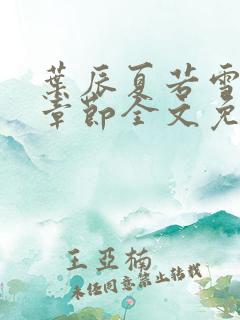 葉辰夏若雪
章節全文免
王亞楠
未经同意禁止转载